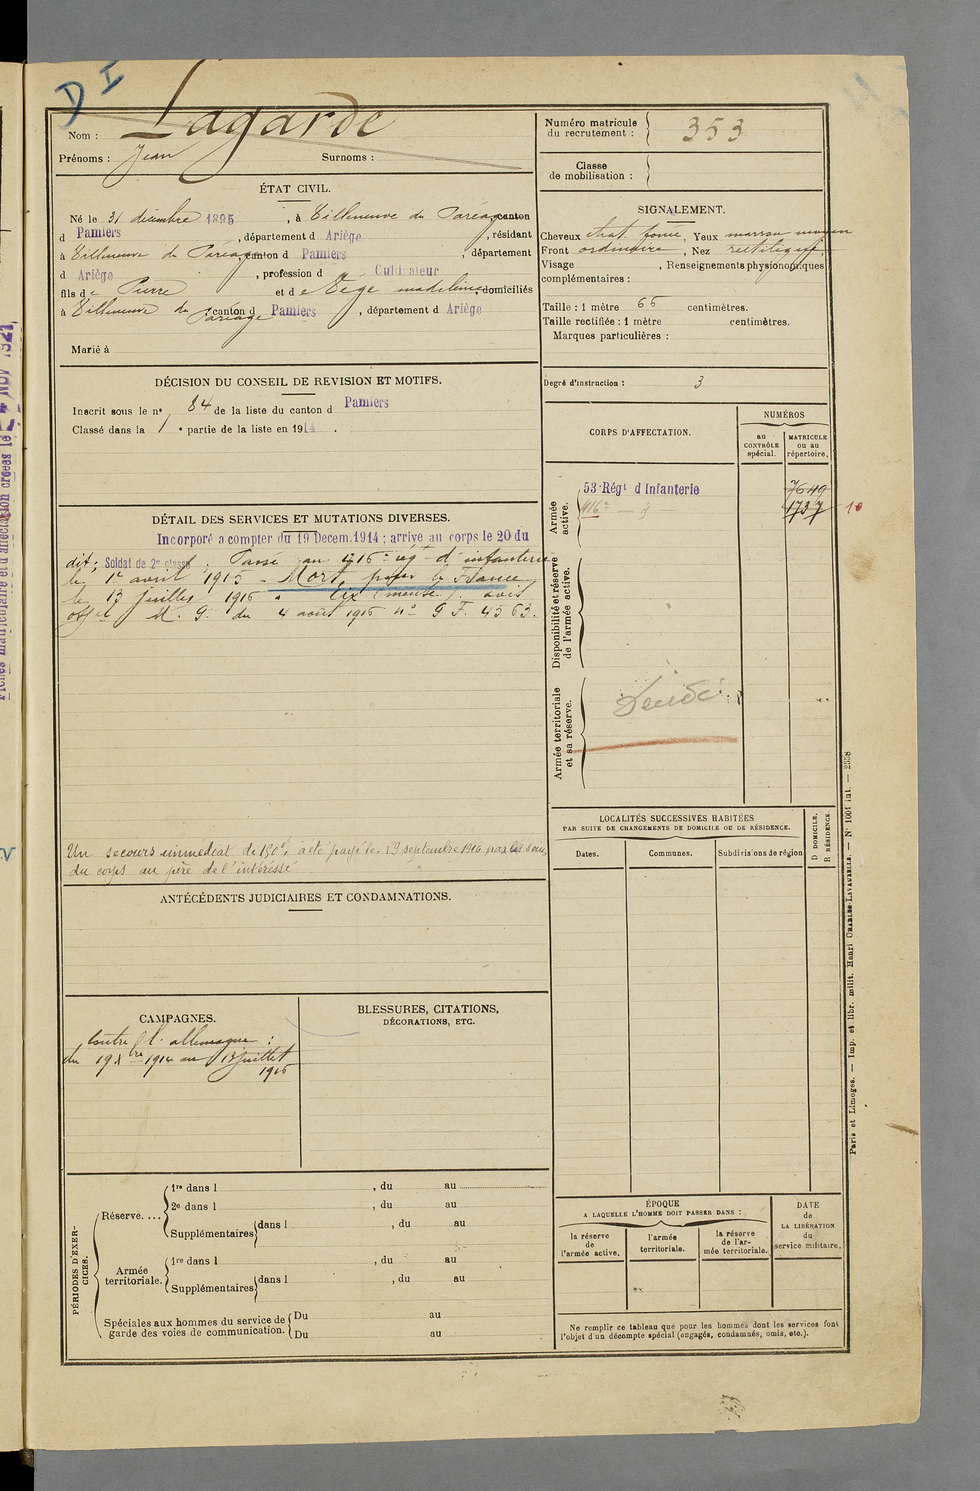 D I
Nom : Lagarde
Prénoms : Jean Surnoms :
Numéro matricule du recrutement : 353
Classe de mobilisation :
ÉTAT CIVIL.
Né le 31 décembre 1895, à Villeneuve du Paréage, canton
d Pamiers, département d Ariège, résidant
à Villeneuve du Paréage, canton d Pamiers, département
d Ariège, profession d Cultivateur
fils de Pierre et de Vège madeleine domiciliés
à Villeneuve du Paréage canton d Pamiers, département d Ariège
Marié à
SIGNALEMENT.
Cheveux chat. foncé, Yeux marron moyen
Front ordinaire, Nez rectiligne.
Visage , Renseignements physionomiques
complémentaires :
Taille : 1 mètre 66 centimètres.
Taille rectifiée : 1 mètre centimètres.
Marques particulières :
Degré d'instruction : 3
DÉCISION DU CONSEIL DE REVISION ET MOTIFS.
Inscrit sous le n° 84 de la liste du canton d Pamiers
Classé dans la 1 e partie de la liste en 1914.
CORPS D'AFFECTATION.
NUMÉROS
au CONTRÔLE spécial.
MATRICULE ou au répertoire.
Armée active.
53e Régt d Infanterie 7649
416e — d — 1737 10
Disponibilité et réserve de l'armée active.
Armée territoriale et sa réserve.
DÉTAIL DES SERVICES ET MUTATIONS DIVERSES.
Incorporé a compter du 19 Decem. 1914 ; arrivé au corps le 20 du
dit; Soldat de 2e classe. Passé au 416e régt d'infanterie
le 1er avril 1915 — Mort pour la France
le 13 juillet 1916 à (meuse). avis
offel M. G. du 4 août 1916 no G F. 4563.
Un secours immédiat de 150f a été payé le 29 septembre 1916 par les soins
du corps au père de l'intéressé
ANTÉCÉDENTS JUDICIAIRES ET CONDAMNATIONS.
CAMPAGNES.
Contre l'allemagne :
du 19 Xbre 1914 au 13 juillet
1916
BLESSURES, CITATIONS,
DÉCORATIONS, ETC.
LOCALITÉS SUCCESSIVES HABITÉES
PAR SUITE DE CHANGEMENTS DE DOMICILE OU DE RÉSIDENCE.
Dates. Communes. Subdivisions de région
D DOMICILE.
R RÉSIDENCE.
PÉRIODES D'EXERCICES.
Réserve....
1re dans l , du au
2e dans l , du au
Supplémentaires dans l , du au
Armée territoriale.
1re dans l , du au
Supplémentaires dans l , du au
Spéciales aux hommes du service de garde des voies de communication.
Du au
Du au
ÉPOQUE
A LAQUELLE L'HOMME DOIT PASSER DANS :
la réserve de l'armée active.
l'armée territoriale.
la réserve de l'armée territoriale.
DATE de LA LIBÉRATION du service militaire.
Ne remplir ce tableau que pour les hommes dont les services font
l'objet d'un décompte spécial (engagés, condamnés, omis, etc.).
Paris et Limoges. — Imp. et libr. milit. Henri CHARLES-LAVAUZELLE. — N° 1001 int. — 2558